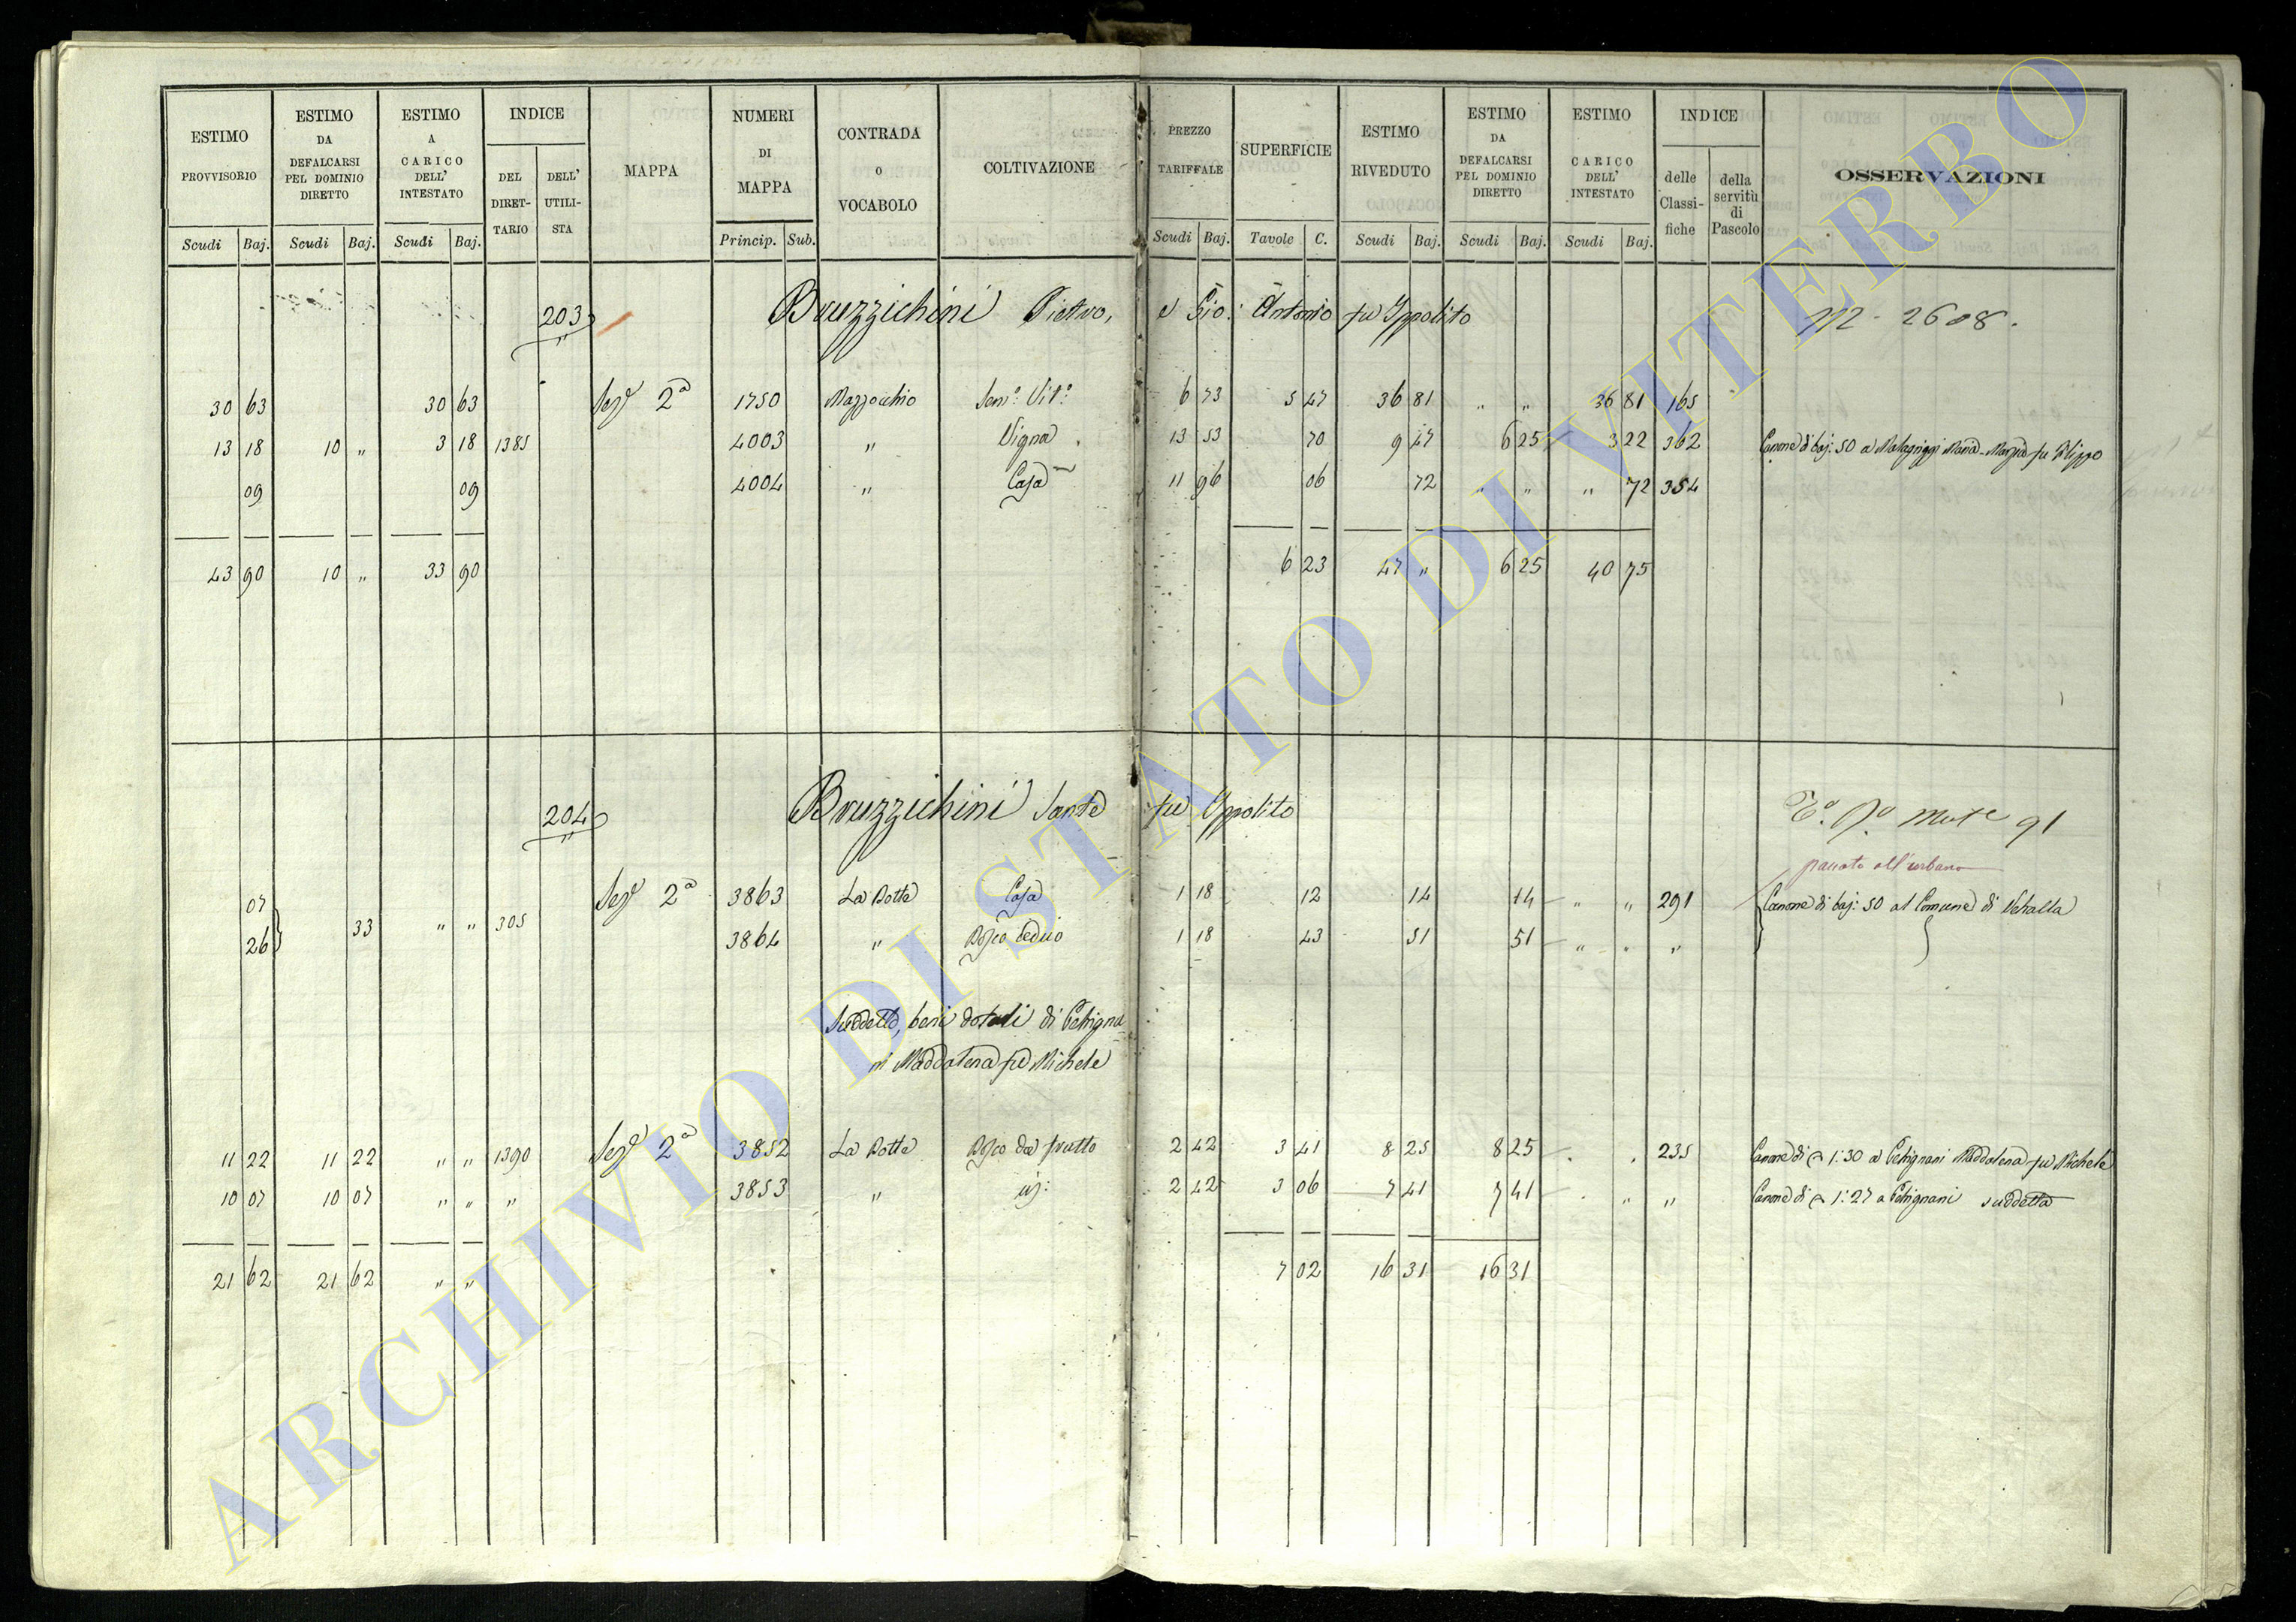 ESTIMO PROVVISORIO
ESTIMO DA DEFALCARSI PEL DOMINIO DIRETTO
ESTIMO A CARICO DELL' INTESTATO
INDICE
DEL DIRET-TARIO
DELL' UTILI-STA
MAPPA
NUMERI DI MAPPA
CONTRADA O VOCABOLO
COLTIVAZIONE
PREZZO TARIFFALE
SUPERFICIE
ESTIMO RIVEDUTO
ESTIMO DA DEFALCARSI PEL DOMINIO DIRETTO
ESTIMO A CARICO DELL' INTESTATO
INDICE
delle Classi-fiche
della servitù di Pascolo
OSSERVAZIONI
Scudi Baj. Scudi Baj. Scudi Baj. Princip. Sub. Scudi Baj. Tavole C. Scudi Baj. Scudi Baj. Scudi Baj.
203 Bruzzichini Pietro, e Gio: Antonio fu Ippolito 2608.
30 63 30 63 Sez.e 2a 1750 Mazzocchio Sem.o Vit.o 6 73 5 47 36 81 " " 36 81 165
13 18 10 " 3 18 1385 4003 " Vigna 13 53 70 9 47 6 25 3 22 362 Canone di baj: 50 a Maria fu Filippo
09 09 4004 " Casa 11 96 06 72 " " " 72 354
43 90 10 " 33 90 6 23 47 " 6 25 40 75
204 Bruzzichini Sante fu Ippolito 91
passato all'urbano
07 Sez.e 2a 3863 La Botte Casa 1 18 12 14 14 " " 291 Canone di baj: 50 al Comune di Vetralla
33 " " 305
26 3864 " Bosco ceduo 1 18 43 51 51 " " "
Suddetto, beni dotali di Petrigna
ni Maddalena fu Michele
11 22 11 22 " " 1390 Sez.e 2a 3852 La Botte Bosco da frutto 2 42 3 41 8 25 8 25 " " 235 Canone di 1:30 a Petrignani Maddalena fu Michele
10 07 10 07 " " " 3853 " id: 2 42 3 06 7 41 7 41 " " " Canone di 1:27 a Petrignani suddetta
21 62 21 62 " " 7 02 16 31 16 31
ARCHIVIO DI STATO DI VITERBO